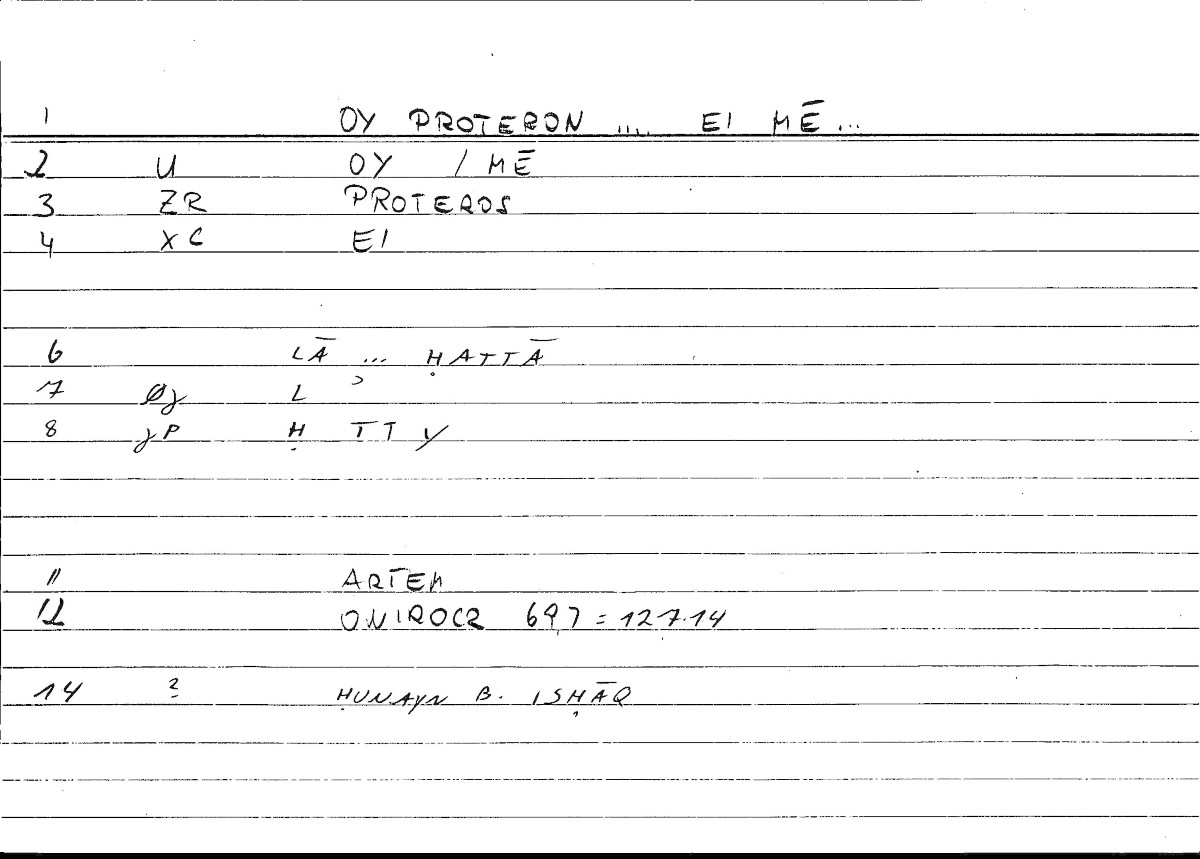 1 OY PROTERON .... EI MĒ ...
2 U OY / MĒ
3 ZR PROTEROS
4 XC EI
6 LĀ ... ḤATTĀ
7 Øγ L ʾ
8 γP Ḥ TTY
11 ARTEM
12 ONIROCR 69,7 = 127.14
14 2 ḤUNAYN B. ISḤĀQ